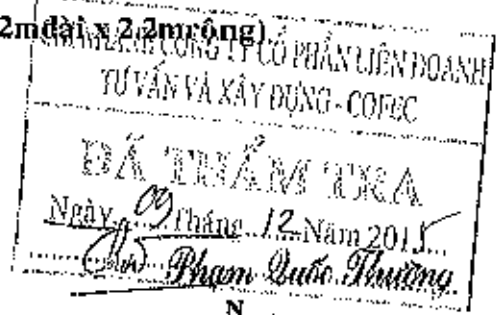 2mdài x 2.2mrộng)
CÔNG TY CỔ PHẦN LIÊN DOANH
TƯ VẤN VÀ XÂY DỰNG - COFEC
ĐÃ THẨM TRA
Ngày 09 Tháng 12 Năm 2015
Phạm Quốc Thường
N